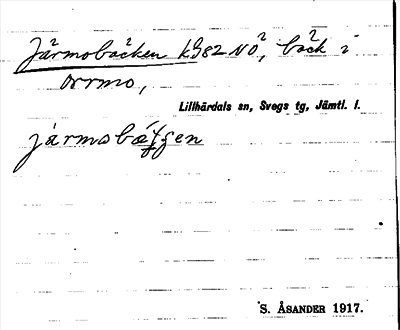 Järmobäcken kg 82 NO, bäck i
Orrmo,
Lillhärdals sn, Svegs tg, Jämtl. l.
S. ÅSANDER 1917.